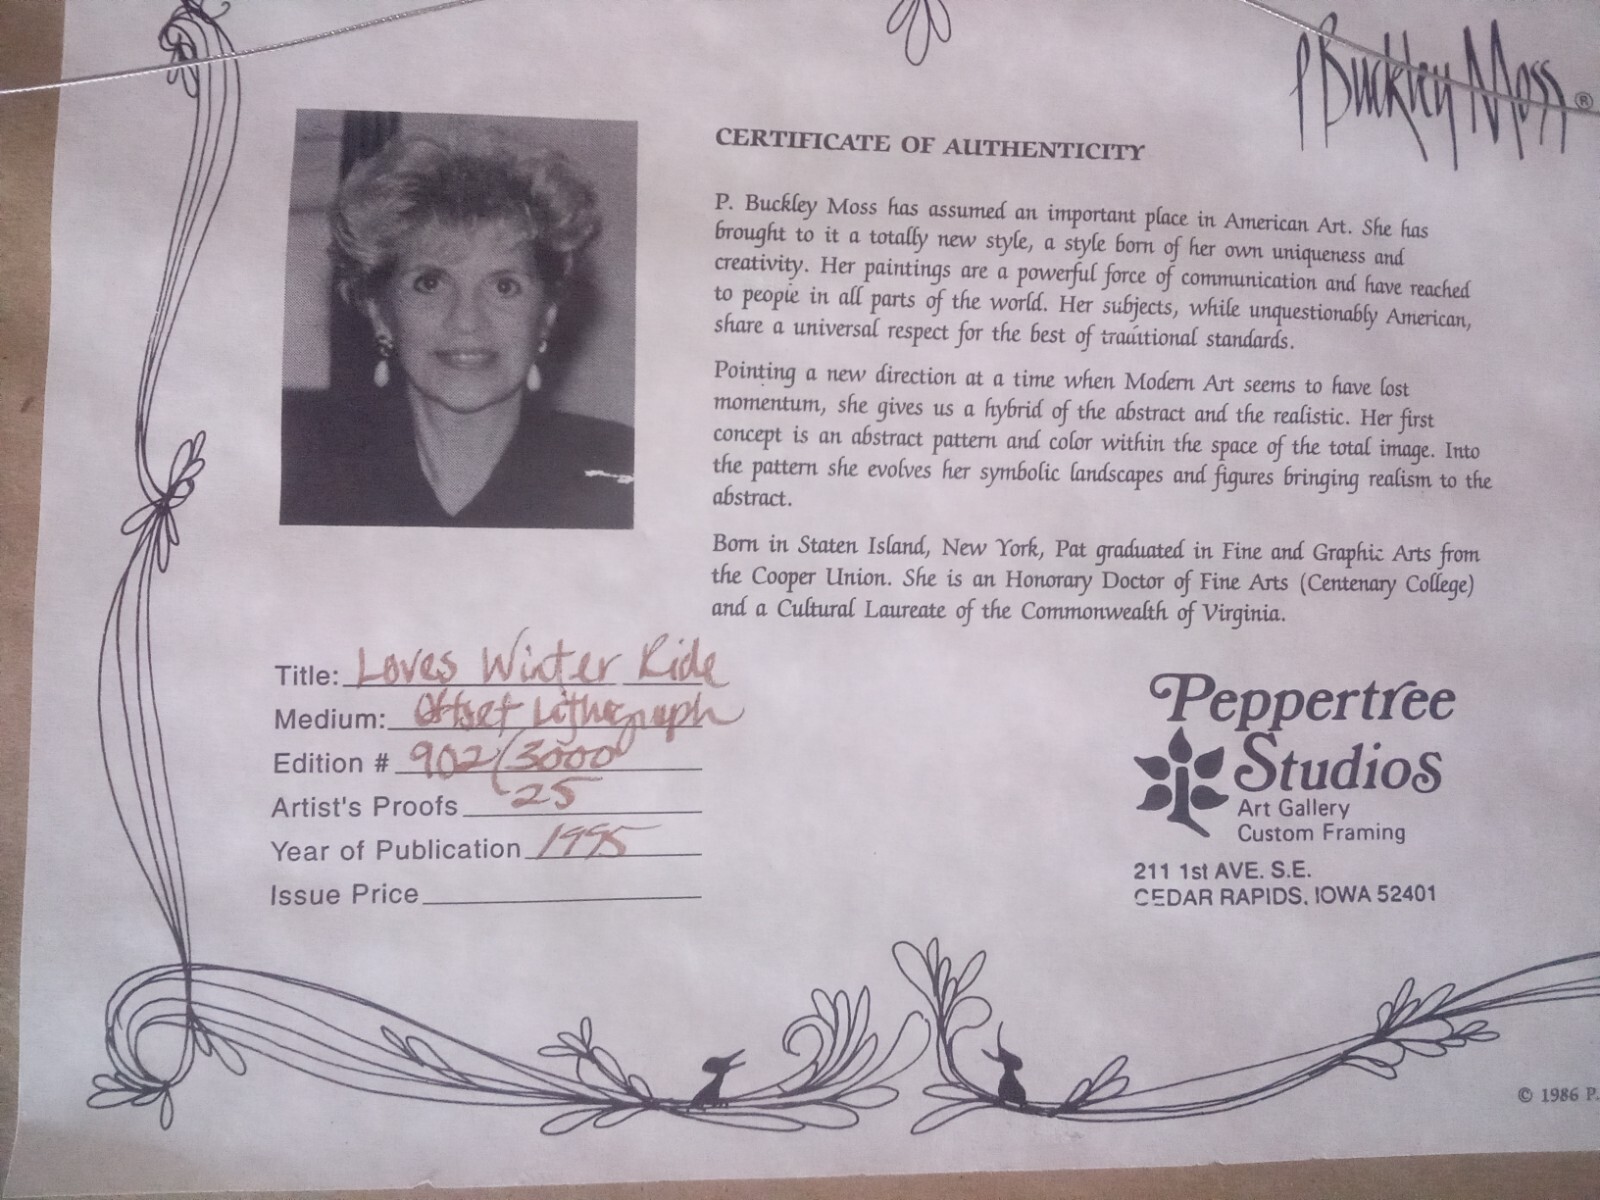 P Buckley Moss ®
CERTIFICATE OF AUTHENTICITY
P. Buckley Moss has assumed an important place in American Art. She has
brought to it a totally new style, a style born of her own uniqueness and
creativity. Her paintings are a powerful force of communication and have reached
to people in all parts of the world. Her subjects, while unquestionably American,
share a universal respect for the best of traditional standards.
Pointing a new direction at a time when Modern Art seems to have lost
momentum, she gives us a hybrid of the abstract and the realistic. Her first
concept is an abstract pattern and color within the space of the total image. Into
the pattern she evolves her symbolic landscapes and figures bringing realism to the
abstract.
Born in Staten Island, New York, Pat graduated in Fine and Graphic Arts from
the Cooper Union. She is an Honorary Doctor of Fine Arts (Centenary College)
and a Cultural Laureate of the Commonwealth of Virginia.
Title: Loves Winter Ride
Medium: Offset Lithograph
Edition # 902/3000
Artist's Proofs 25
Year of Publication 1995
Issue Price
Peppertree
Studios
Art Gallery
Custom Framing
211 1st AVE. S.E.
CEDAR RAPIDS, IOWA 52401
© 1986 P.